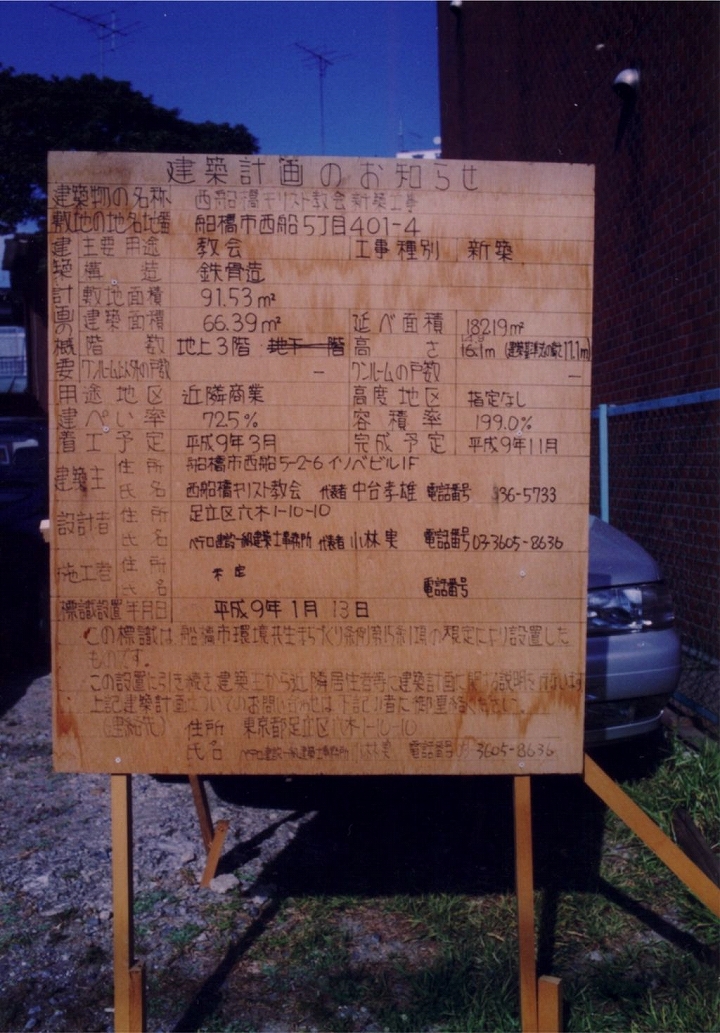 建築計画のお知らせ
建築物の名称 西船橋キリスト教会新築工事
敷地の地名地番 船橋市西船5丁目401-4
建築計画の概要
主要用途 教会 工事種別 新築
構造 鉄骨造
敷地面積 91.53㎡
建築面積 66.39㎡ 延べ面積 182.19㎡
階数 地上3階 地下一階 高さ 16.1m
ワンルーム以外の戸数 － ワンルームの戸数 －
用途地区 近隣商業 高度地区 指定なし
建ぺい率 72.5% 容積率 199.0%
着工予定 平成9年3月 完成予定 平成9年11月
建築主 住所 船橋市西船5-2-6 イソベビル1F
氏名 西船橋キリスト教会 代表者 中台孝雄 電話番号 36-5733
設計者 住所 足立区六木1-10-10
氏名 一級建築士事務所 代表者 小林実 電話番号 03-3605-8636
施工者 住所 未定
氏名 電話番号
標識設置年月日 平成9年1月13日
この標識は、船橋市環境共生まちづくり条例第15条1項の規定により設置した
ものです。
この設置に引き続き建築主から近隣居住者等に建築計画に関する説明を行います
上記建築計画についてのお問い合わせは下記の者に御連絡ください。
(連絡先) 住所 東京都足立区六木1-10-10
氏名 一級建築士事務所 小林実 電話番号 03-3605-8636